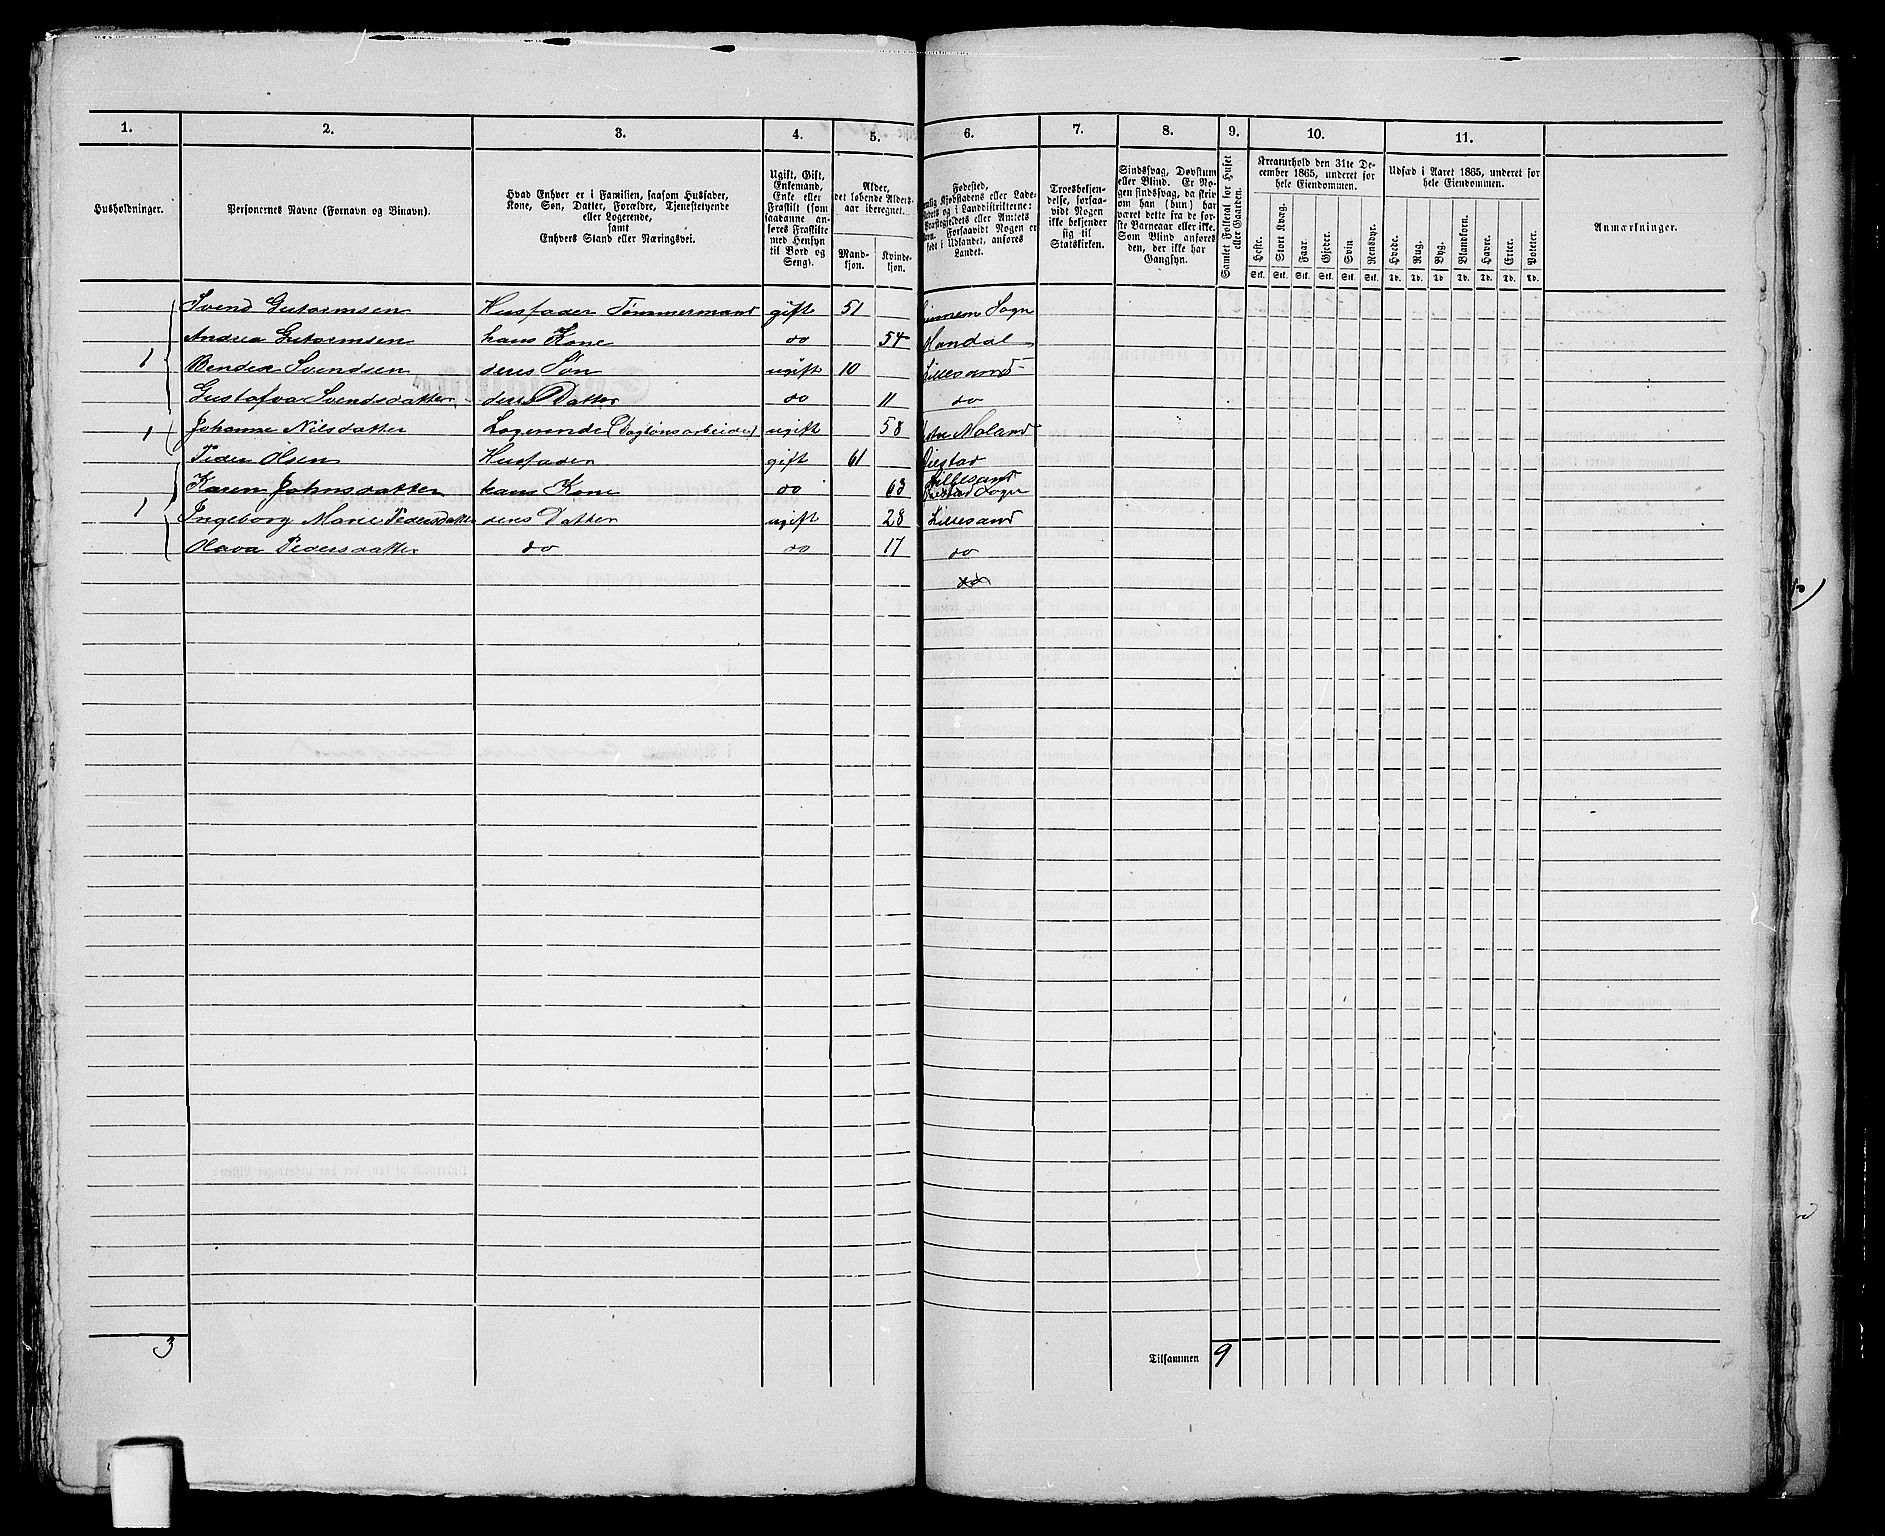 1. 2. 3. 4. 5. 6. 7. 8. 9. 10. 11.
Husholdninger.
Personernes Navne (Fornavn og Binavn).
Hvad Enhver er i Familien, saasom Husfader,
Kone, Søn, Datter, Forældre, Tjenestetyende
eller Logerende,
samt
Enhvers Stand eller Næringsvei.
Ugift, Gift,
Enkemand,
Enke eller
Fraskilt (som
saadanne an-
føres Fraskilte
med Hensyn
til Bord og
Seng).
Alder,
det løbende Alders-
aar iberegnet.
Mand-
kjøn.
Kvinde-
kjøn.
Fødested,
Kjøbstadens eller Lade-
stedets og i Landdistrikterne:
Præstegjeldets eller Amtets
Navn. Forsaavidt Nogen er
født i Udlandet, anføres
Landet.
Troesbekjen-
delse, forsaa-
vidt Nogen
ikke bekjender
sig til
Statskirken.
Sindssvag, Døvstum
eller Blind. Er No-
gen sindssvag, da skriv
om han (hun) har
været dette fra de før-
ste Barneaar eller ikke.
Som Blind anføres
den, der ikke har
Gangsyn.
Samlet Folketal for Huset
eller Gaarden.
Kreaturhold den 31te De-
cember 1865, underet for
hele Eiendommen.
Heste. Stort Kvæg. Faar. Gjeder. Svin Rensdyr.
Stk. Stk. Stk. Stk. Stk. Stk.
Udsæd i Aaret 1865, underet for
hele Eiendommen.
Hvede. Rug. Byg. Blandkorn. Havre. Erter. Poteter.
Td. Td. Td. Td. Td. Td. Td.
Anmærkninger.
Svend Gutormsen Husfader Tømmermand gift 51 Sogn
Andrea Gutormsen hans Kone do 54 Mandal
1 Bendix Svendsen deres Søn ugift 10 Lillesand
Gustafva Svendsdatter deres Datter do 11 do
1 Johanne Nilsdatter Logerende (Daglønsarbeider) ugift 58 Moland
Peder Olsen Husfader gift 61
Karen Johnsdatter hans Kone do 63 Lillesand Sogn
1 Ingeborg Marie Pedersdatter deres Datter ugift 28 Lillesand
Olava Pedersdatter do do 17 do
3 Tilsammen 9